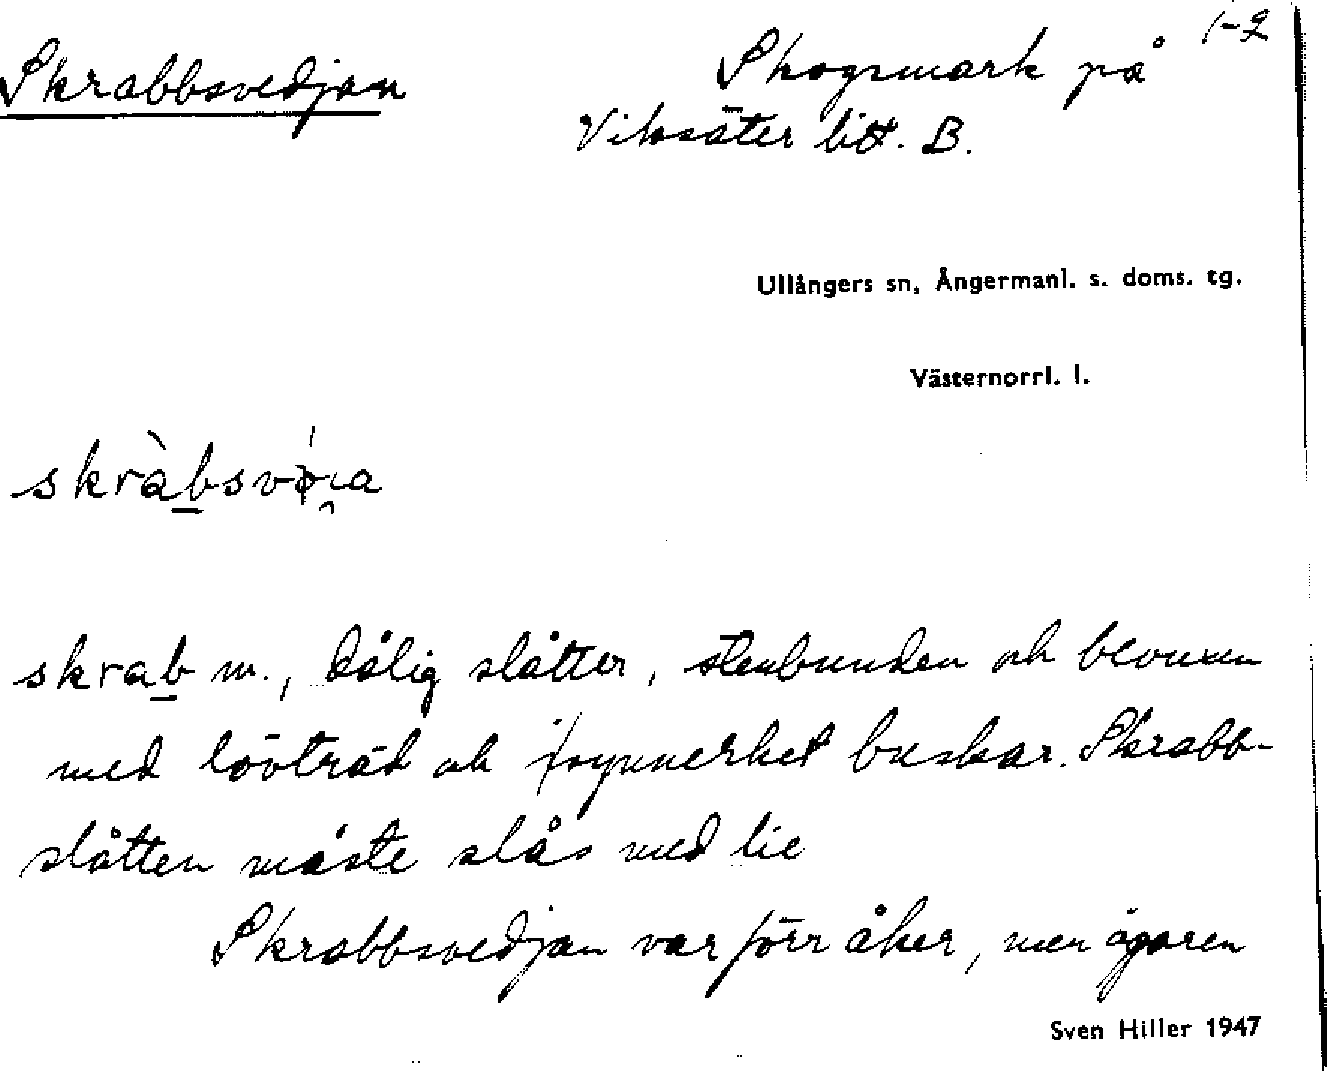 1-2
Skrabbsvedjan Skogsmark på
Viksäter litt. B.
Ullångers sn, Ångermanl. s. doms. tg.
Västernorrl. l.
skràbsvø̀ıa
skrab m., dålig slåtter, stenbunden och bevuxen
med lövträd och i synnerhet buskar. Skrabb-
slåtten måste slås med lie
Skrabbsvedjan var förr åker, men ägaren
Sven Hiller 1947